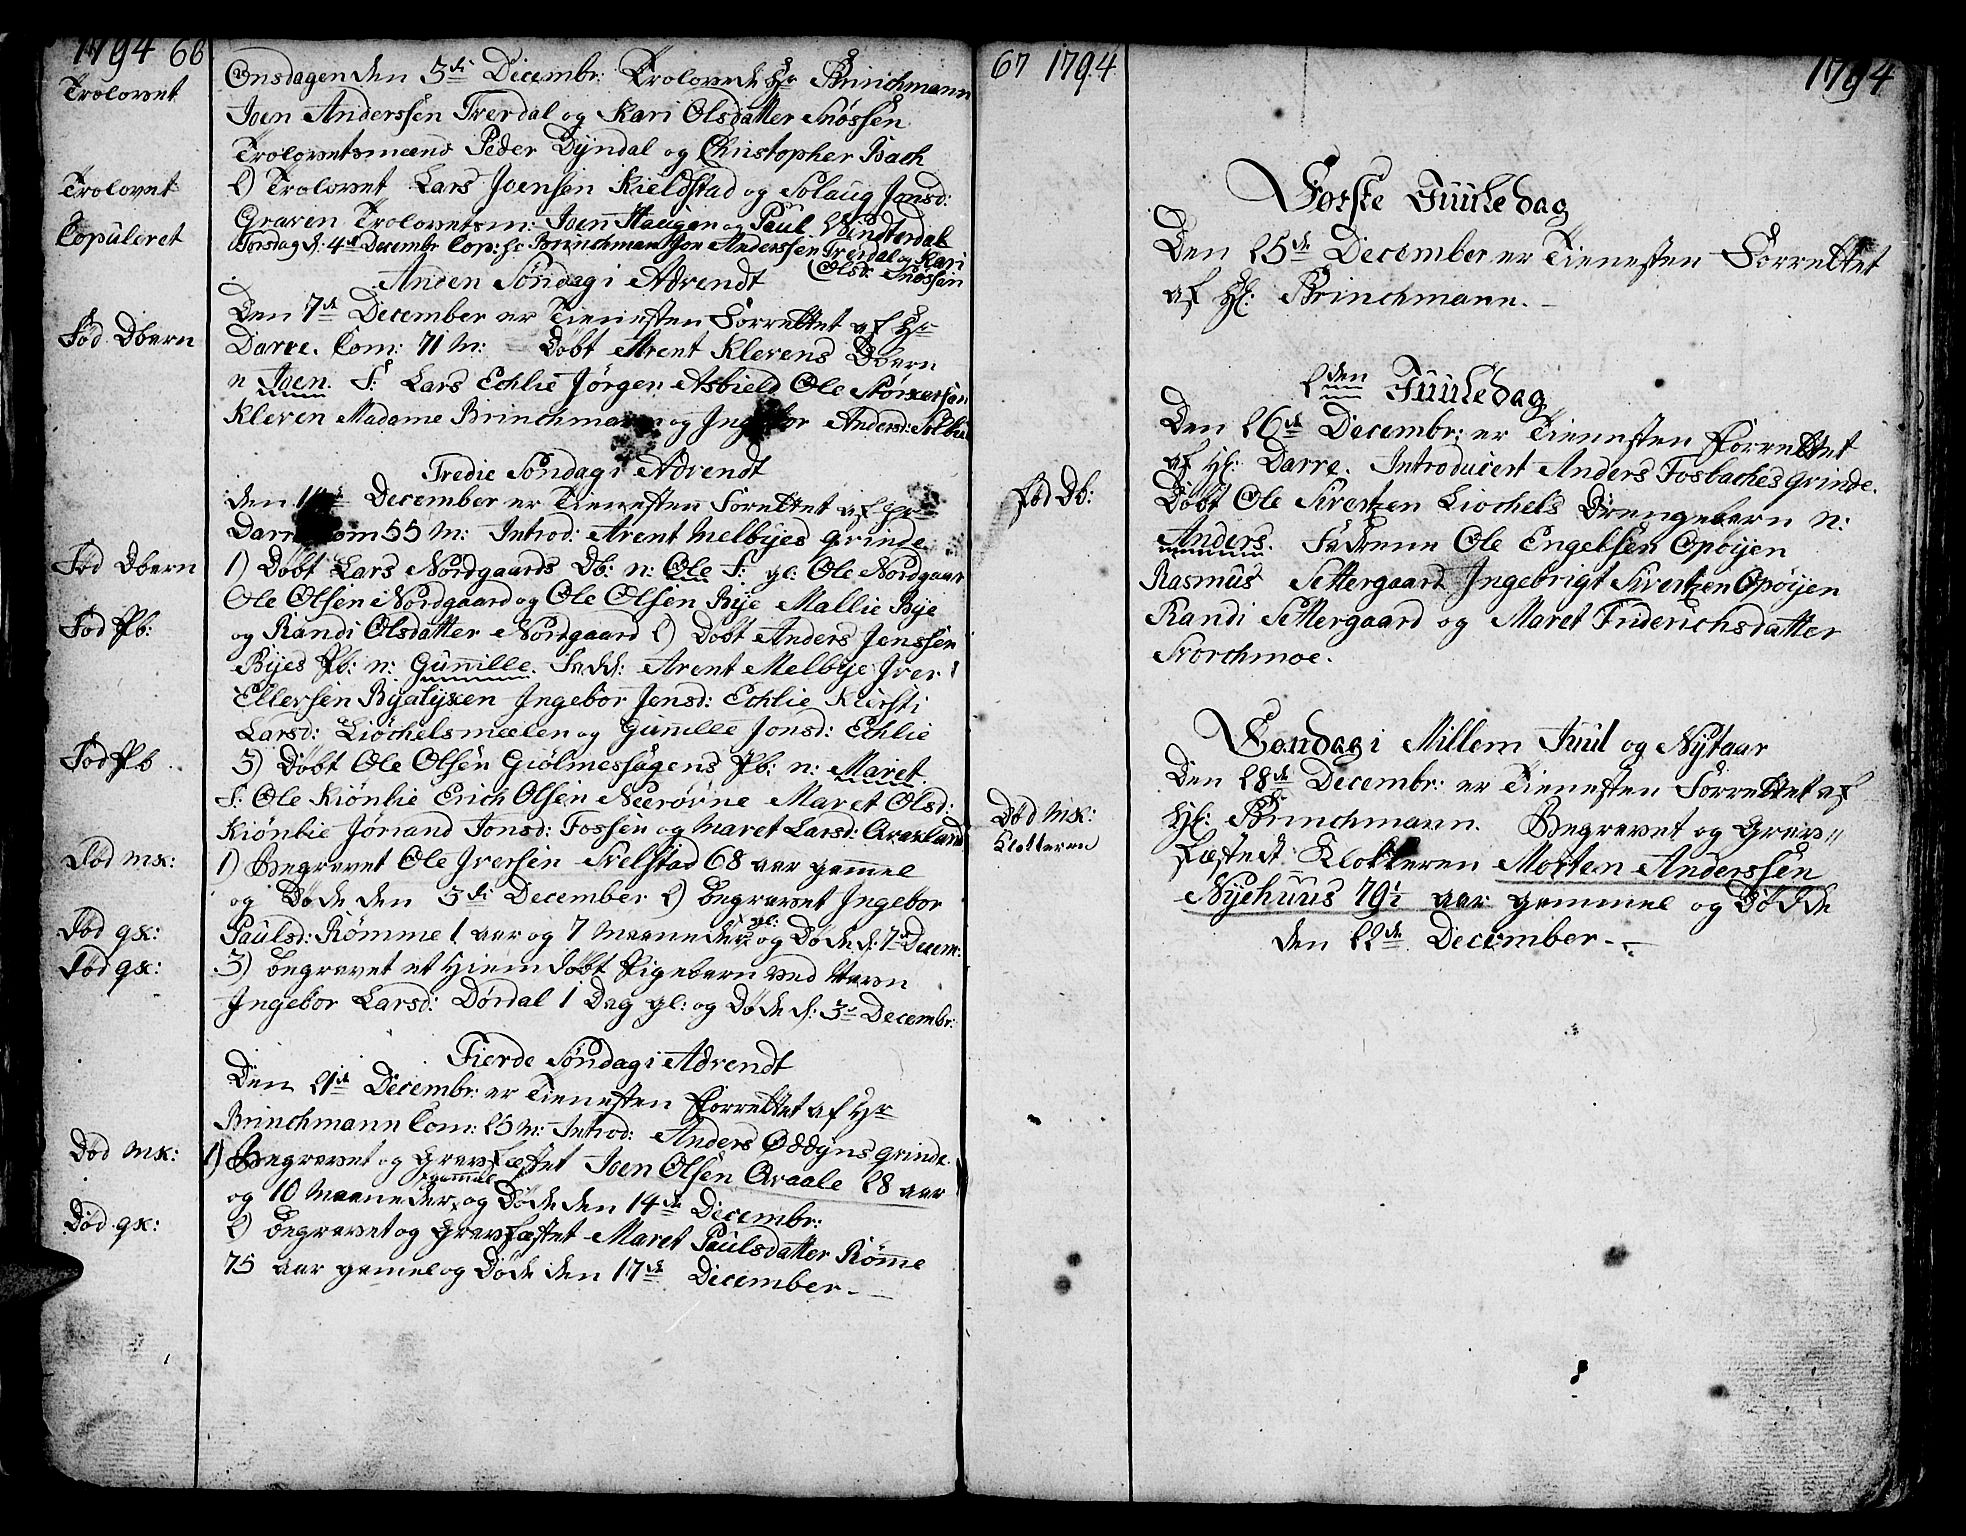 1794 66
Trolovet
Onsdagen den 3di Decembr: Trolovede Hr Brinchmann
Joen Anderssen Trerdal og Kari Olsdatter Snössen
Trolovetsmænd Peder Dyndal og Christopher Bach
Trolovet
2) Trolovet Lars Joensen Kieldstad og Solaug Jonsd:
Graven Trolovetsm: Joen Haugen og Paul
Copuleret
Torsdag d: 4de Decembr Cop: Hr Brinchmann Jon Anderssen Trerdal og Kari
Olsdr Snössen
Anden Söndag i Advendt
Den 7de December er Tienesten Forrettet af Hr
Fød Dbarn
Darre. Com: 71 M: Døbt Arent Klevens Dbarn
n Joen. F: Lars Echlie Jørgen Asbield Ole Størxersøn
Kleven Madame Brinchmann og Ingebor Andersd: Solbu
Tredie Söndag i Advendt
den December er Tienesten Forettet af Hr
Darre Com 55 M: Introd: Arent Melbyes Qvinde
Fød Dbarn
1) Døbt Lars Nordgaards Db: n: Ole F: gl: Ole Nordgaar
Ole Olsen Nordgaard og Ole Olsen Bye Mallie Bye
Fød Pb:
og Randi Olsdatter Nordgaard 2) Døbt Anders Jenssen
Byes Pb: n: Gunnille. Fadd: Arent Melbye Iver
Ellevsen Byalyxen Ingebor Jensd: Echlie Kiersti
Larsd: Liöchelsmælen og Gunnille Jonsd: Echlie
Fød Pb
3) Døbt Ole Olsen Giölmessagens Pb: n: Maret.
F: Ole Kiönlie Erich Olsen Neerövne Maret Olsd:
Kiönlie Jörrand Jonsd: Fossen og Maret Larsd: Qvaxland
Død mk:
1) Begravet Ole Iversen Svelstad 68 aar gammel
og Døde den 3di December 2) Begravet Ingebor
Død qk:
Paulsd: Römme 1 aar og 7 Maaneder gl: og Døde d: 7de Decem:
Død qk:
3) Begravet et Hiemdøbt Pigebarn ved Navn
Ingebor Larsd: Dördal 1 Dag gl: og Døde d: 3de Decembr:
Fierde Søndag i Advendt
Den 21de Decembr: er Tienesten Forrettet af Hr
Brinchmann Com: 25 M: Introd: Anders Oddyns Qvinde.
Død mk:
1) Begravet og Gravfæstet Joen Olsen Qvaale 28 aar
og 10 Maaneder gammel og Døde den 14de Decembr:
Død qk:
2) Begravet og Gravfæstet Maret Paulsdatter Römme
75 aar gamel og Døde den 17de December.
67 1794
1794
Første Juule dag
Den 25de December er Tienesten Forrettet
af Hr: Brinchmann.
2den Juuledag
Den 26de Decembr: er Tienesten Forrettet
af Hr: Darre. Introducert Anders Fosbaches Qvinde.
Fød Db:
Døbt Ole Sivertzen Liochels Drengebarn n:
Anders. Fadderne Ole Engelsen Opöyen
Rasmus Settergaard Ingebrigt Sivertzen Opöyen
Randi Settergaard og Maret Friderichsdatter
Storchmoe.
Søndag i Millem Juul og Nytaar
Den 28de Decembr: er Tienesten Forrettet af
Død mk:
Klokkeren
Hr: Brinchmann. Begravet og Grav-
fæstet: Klokkeren Morten Anderssen
Nyehuus 79½ aar gammel og Dødde
den 22de December.